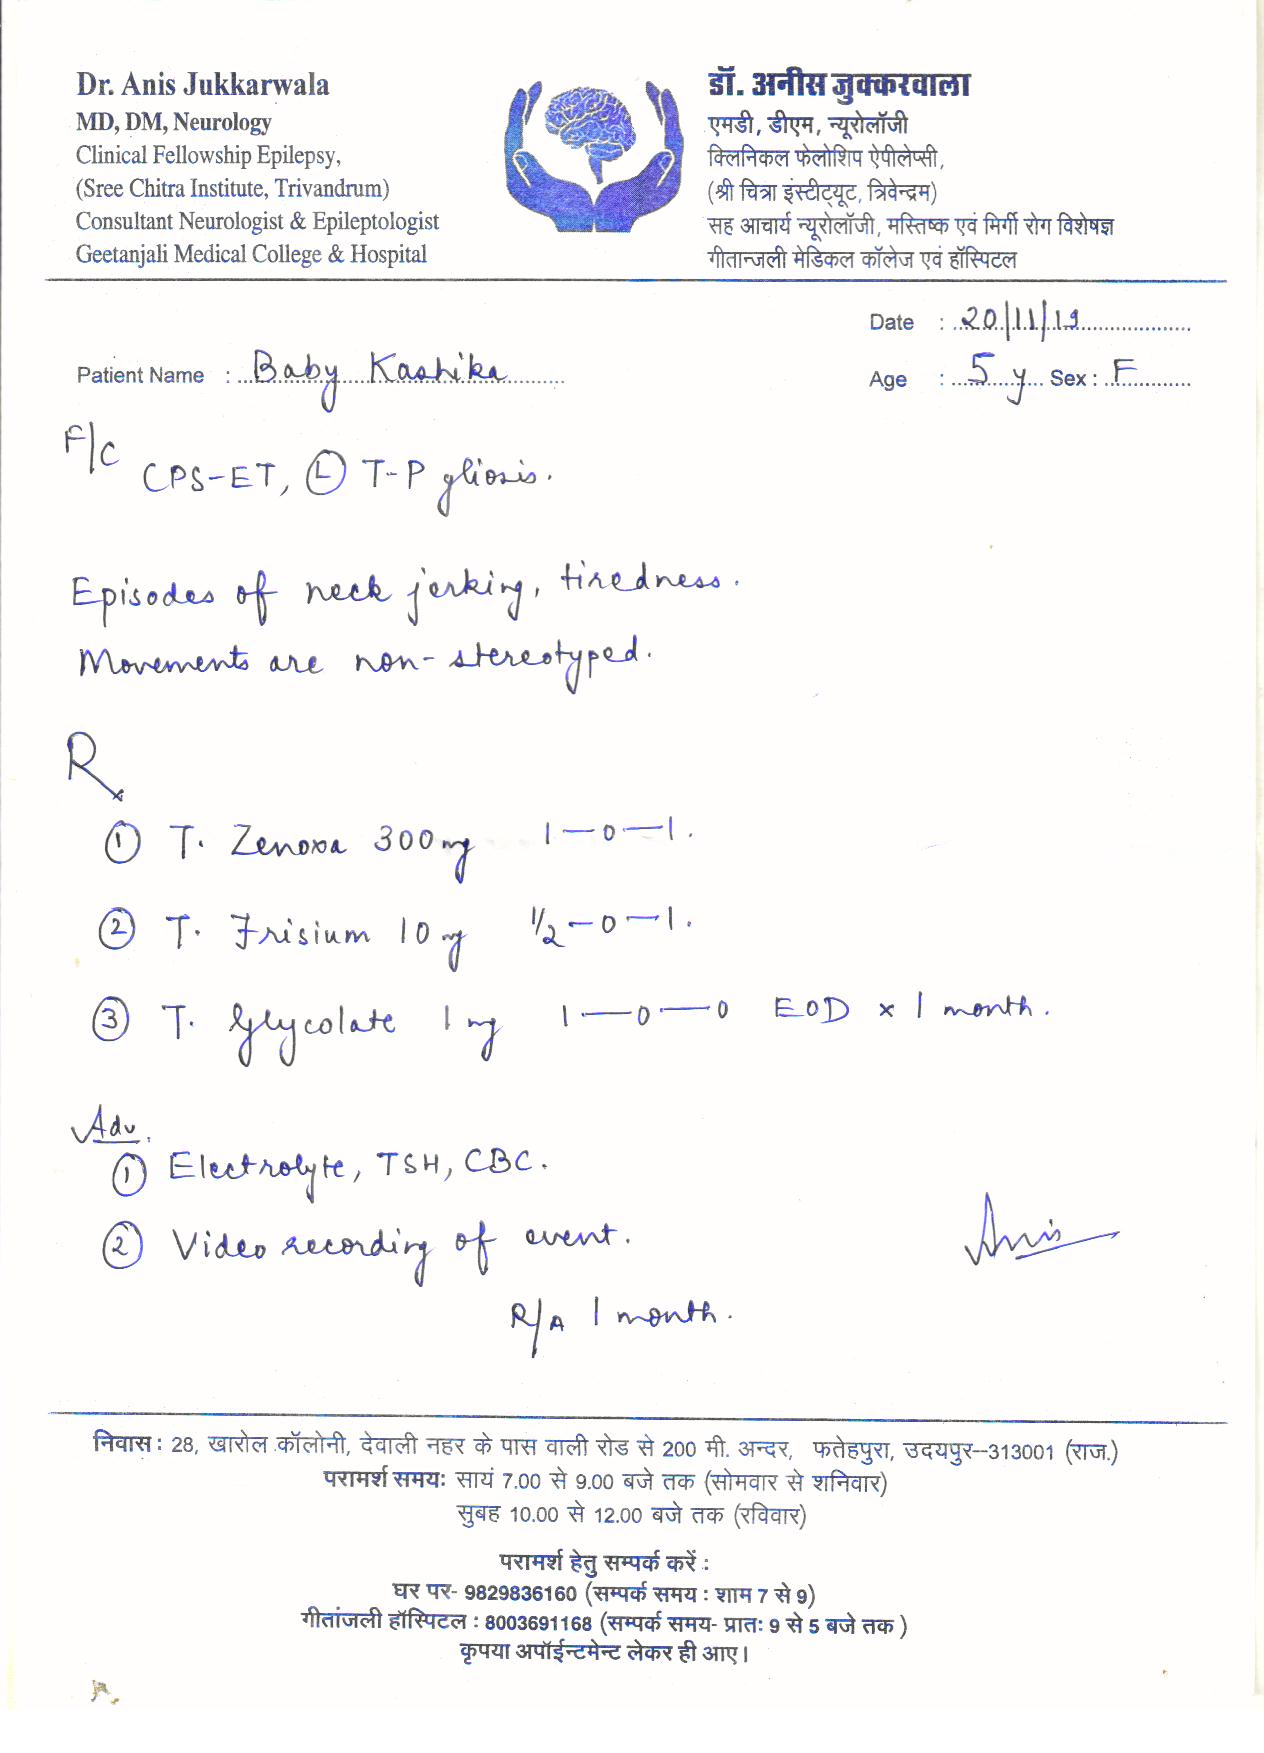 Dr. Anis Jukkarwala
MD, DM, Neurology
Clinical Fellowship Epilepsy,
(Sree Chitra Institute, Trivandrum)
Consultant Neurologist & Epileptologist
Geetanjali Medical College & Hospital
डॉ. अनीस जुक्करवाला
एमडी, डीएम, न्यूरोलॉजी
क्लिनिकल फेलोशिप ऐपीलेप्सी,
(श्री चित्रा इंस्टीट्यूट, त्रिवेन्द्रम)
सह आचार्य न्यूरोलॉजी, मस्तिष्क एवं मिर्गी रोग विशेषज्ञ
गीतान्जली मेडिकल कॉलेज एवं हॉस्पिटल
Date : 20/11/19
Patient Name : Baby Kashika
Age : 5 y Sex : F
F/C
CPS-ET, Ⓛ T-P gliosis.
Episodes of neck jerking, tiredness.
Movements are non-stereotyped.
Rx
① T. Zenoxa 300 mg 1—0—1.
② T. Frisium 10 mg 1/2—0—1.
③ T. Glycolate 1 mg 1—0—0 EOD x 1 month.
Adv.
① Electrolyte, TSH, CBC.
② Video recording of event.
Anis
R/A 1 month.
निवास : 28, खारोल कॉलोनी, देवाली नहर के पास वाली रोड से 200 मी. अन्दर, फतेहपुरा, उदयपुर--313001 (राज.)
परामर्श समय: सायं 7.00 से 9.00 बजे तक (सोमवार से शनिवार)
सुबह 10.00 से 12.00 बजे तक (रविवार)
परामर्श हेतु सम्पर्क करें :
घर पर- 9829836160 (सम्पर्क समय : शाम 7 से 9)
गीतांजली हॉस्पिटल : 8003691168 (सम्पर्क समय- प्रातः 9 से 5 बजे तक )
कृपया अपॉईन्टमेन्ट लेकर ही आए।